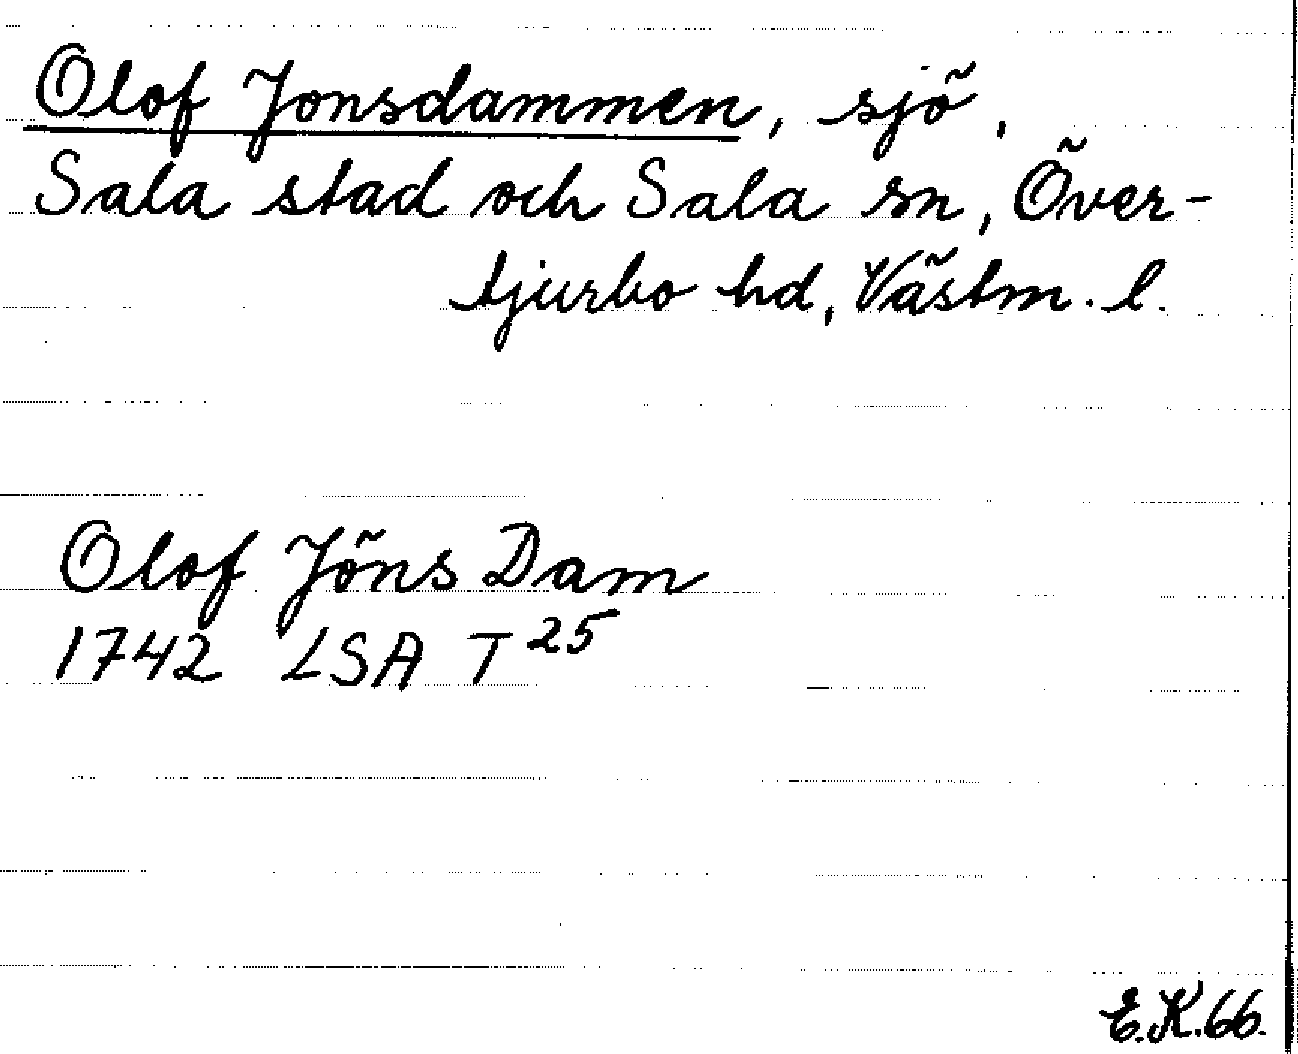 Olof Jonsdammen, sjö,
Sala stad och Sala sn, Över-
tjurbo hd, Västm. l.
Olof Jöns Dam
1742 LSA T 25
E.K.66.